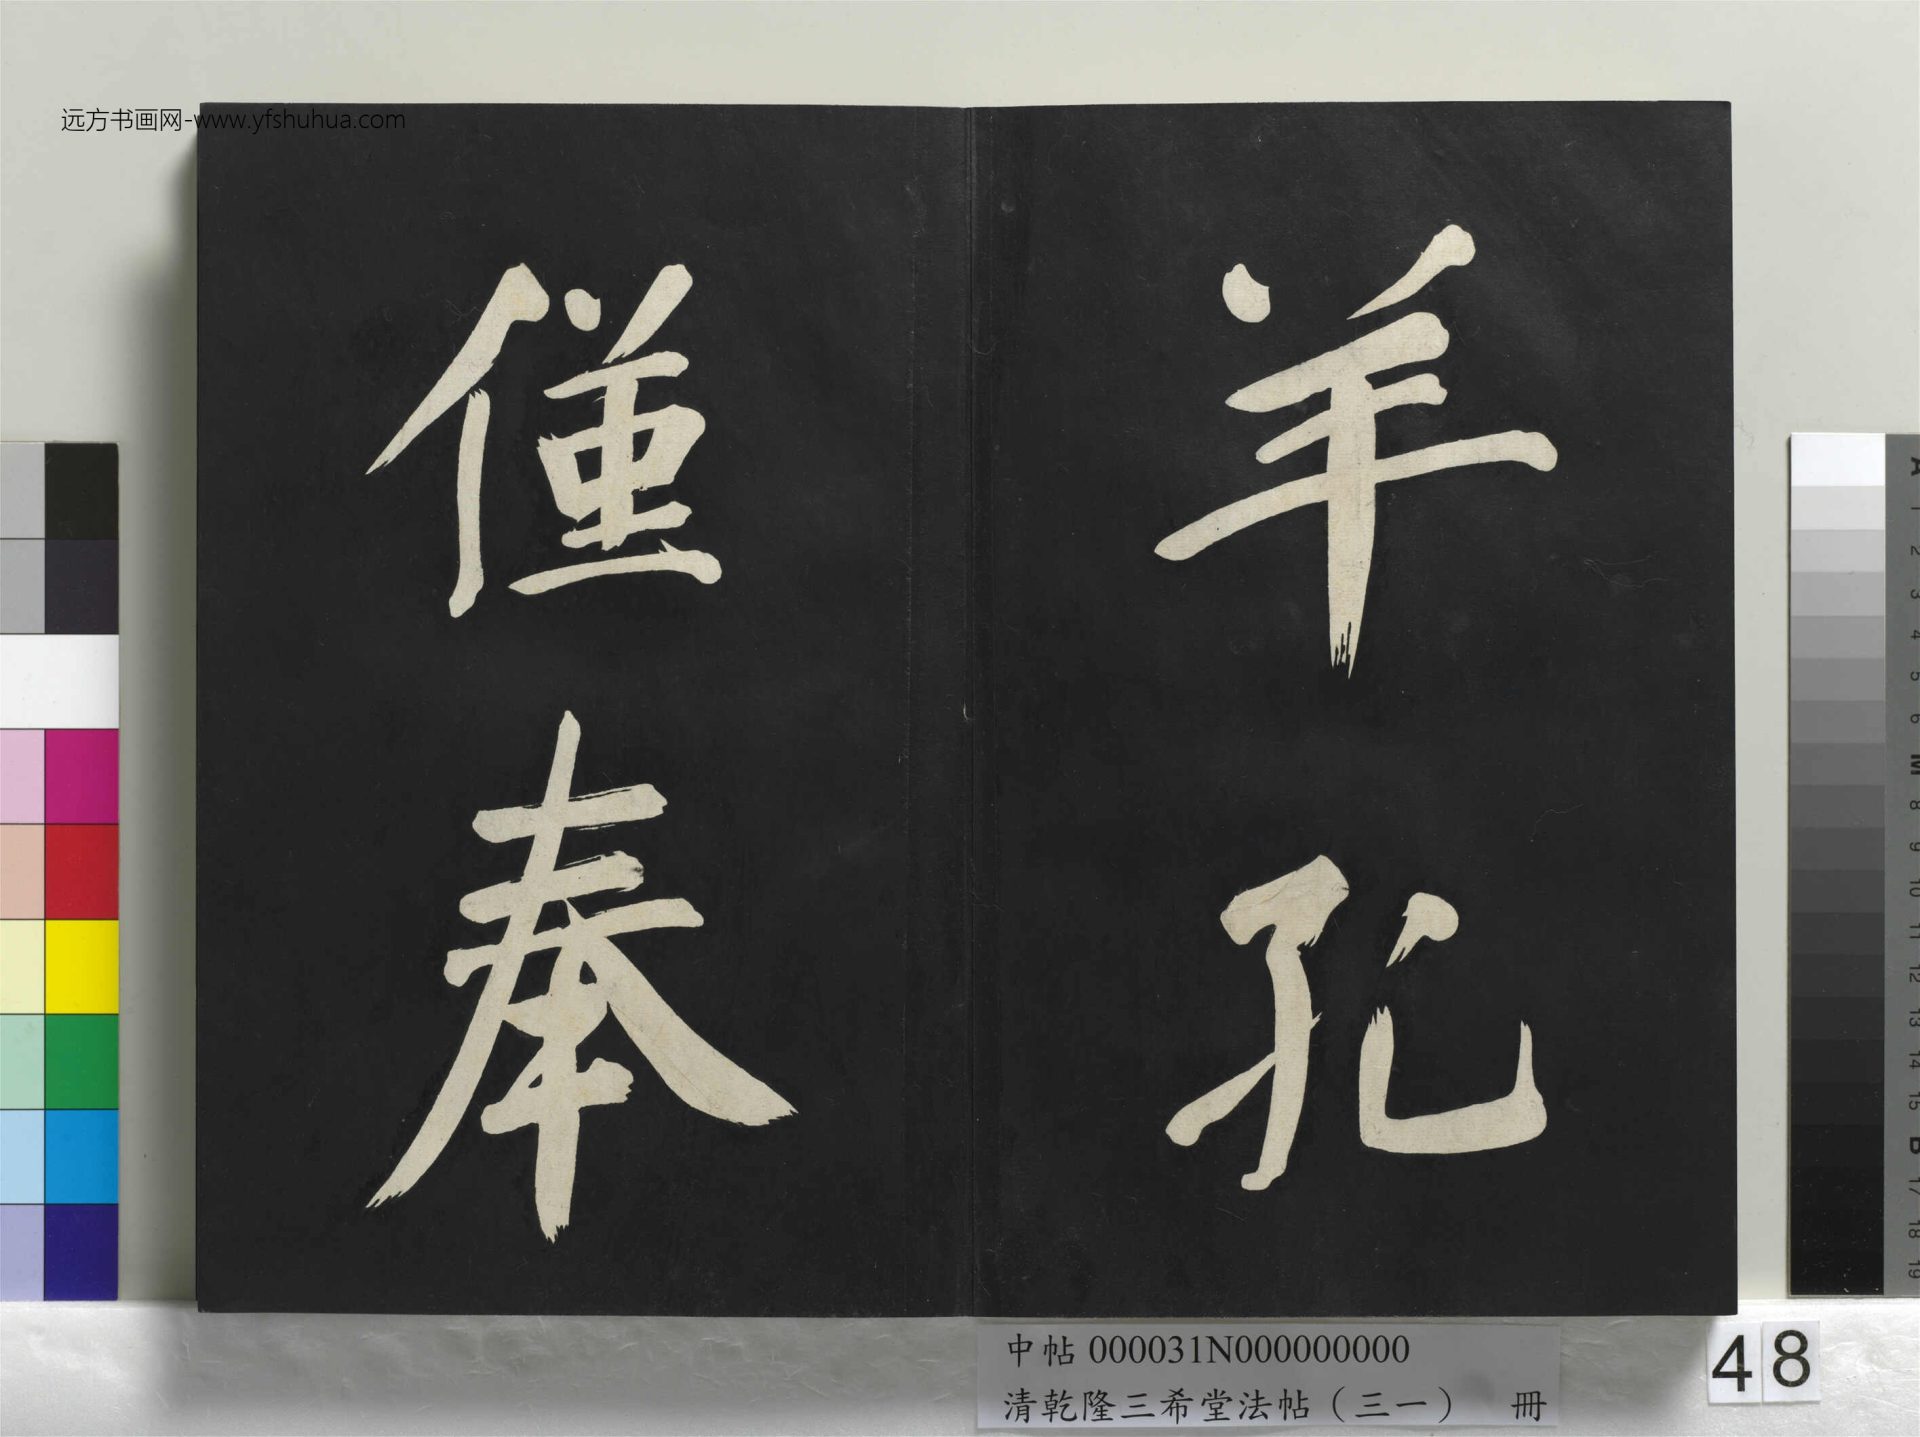 远方书画网-www.yfshuhua.com
羊孔
僅奉
中帖 000031N000000000
清乾隆三希堂法帖（三一） 冊
48
A
1
2
3
4
5
6
M
8
9
10
11
12
13
14
15
B
17
18
19